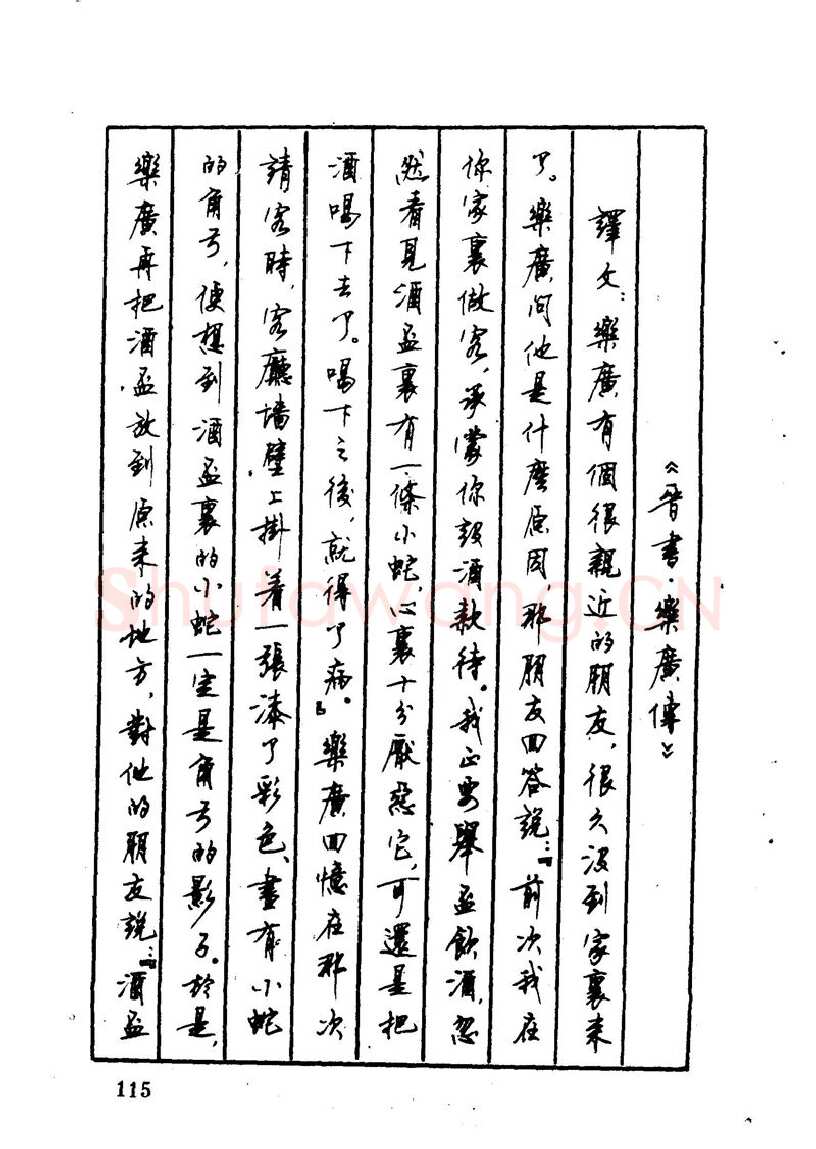 《晉書·樂廣傳》
譯文：樂廣有個很親近的朋友，很久沒到家裏來
了。樂廣問他是什麼原因那朋友回答說：「前次我在
你家裏做客，承蒙你設酒款待。我正要舉盃飲酒，忽
然看見酒盃裏有一條小蛇，心裏十分厭惡它，可還是把
酒喝下去了。喝下之後，就得了病。」樂廣回憶在那次
請客時，客廳墻壁上掛着一張漆了彩色、畫有小蛇
的角弓，便想到酒盃裏的小蛇一定是角弓的影子。於是，
樂廣再把酒盃放到原来的地方，對他的朋友說：「酒盃
115
Shufawang.CN